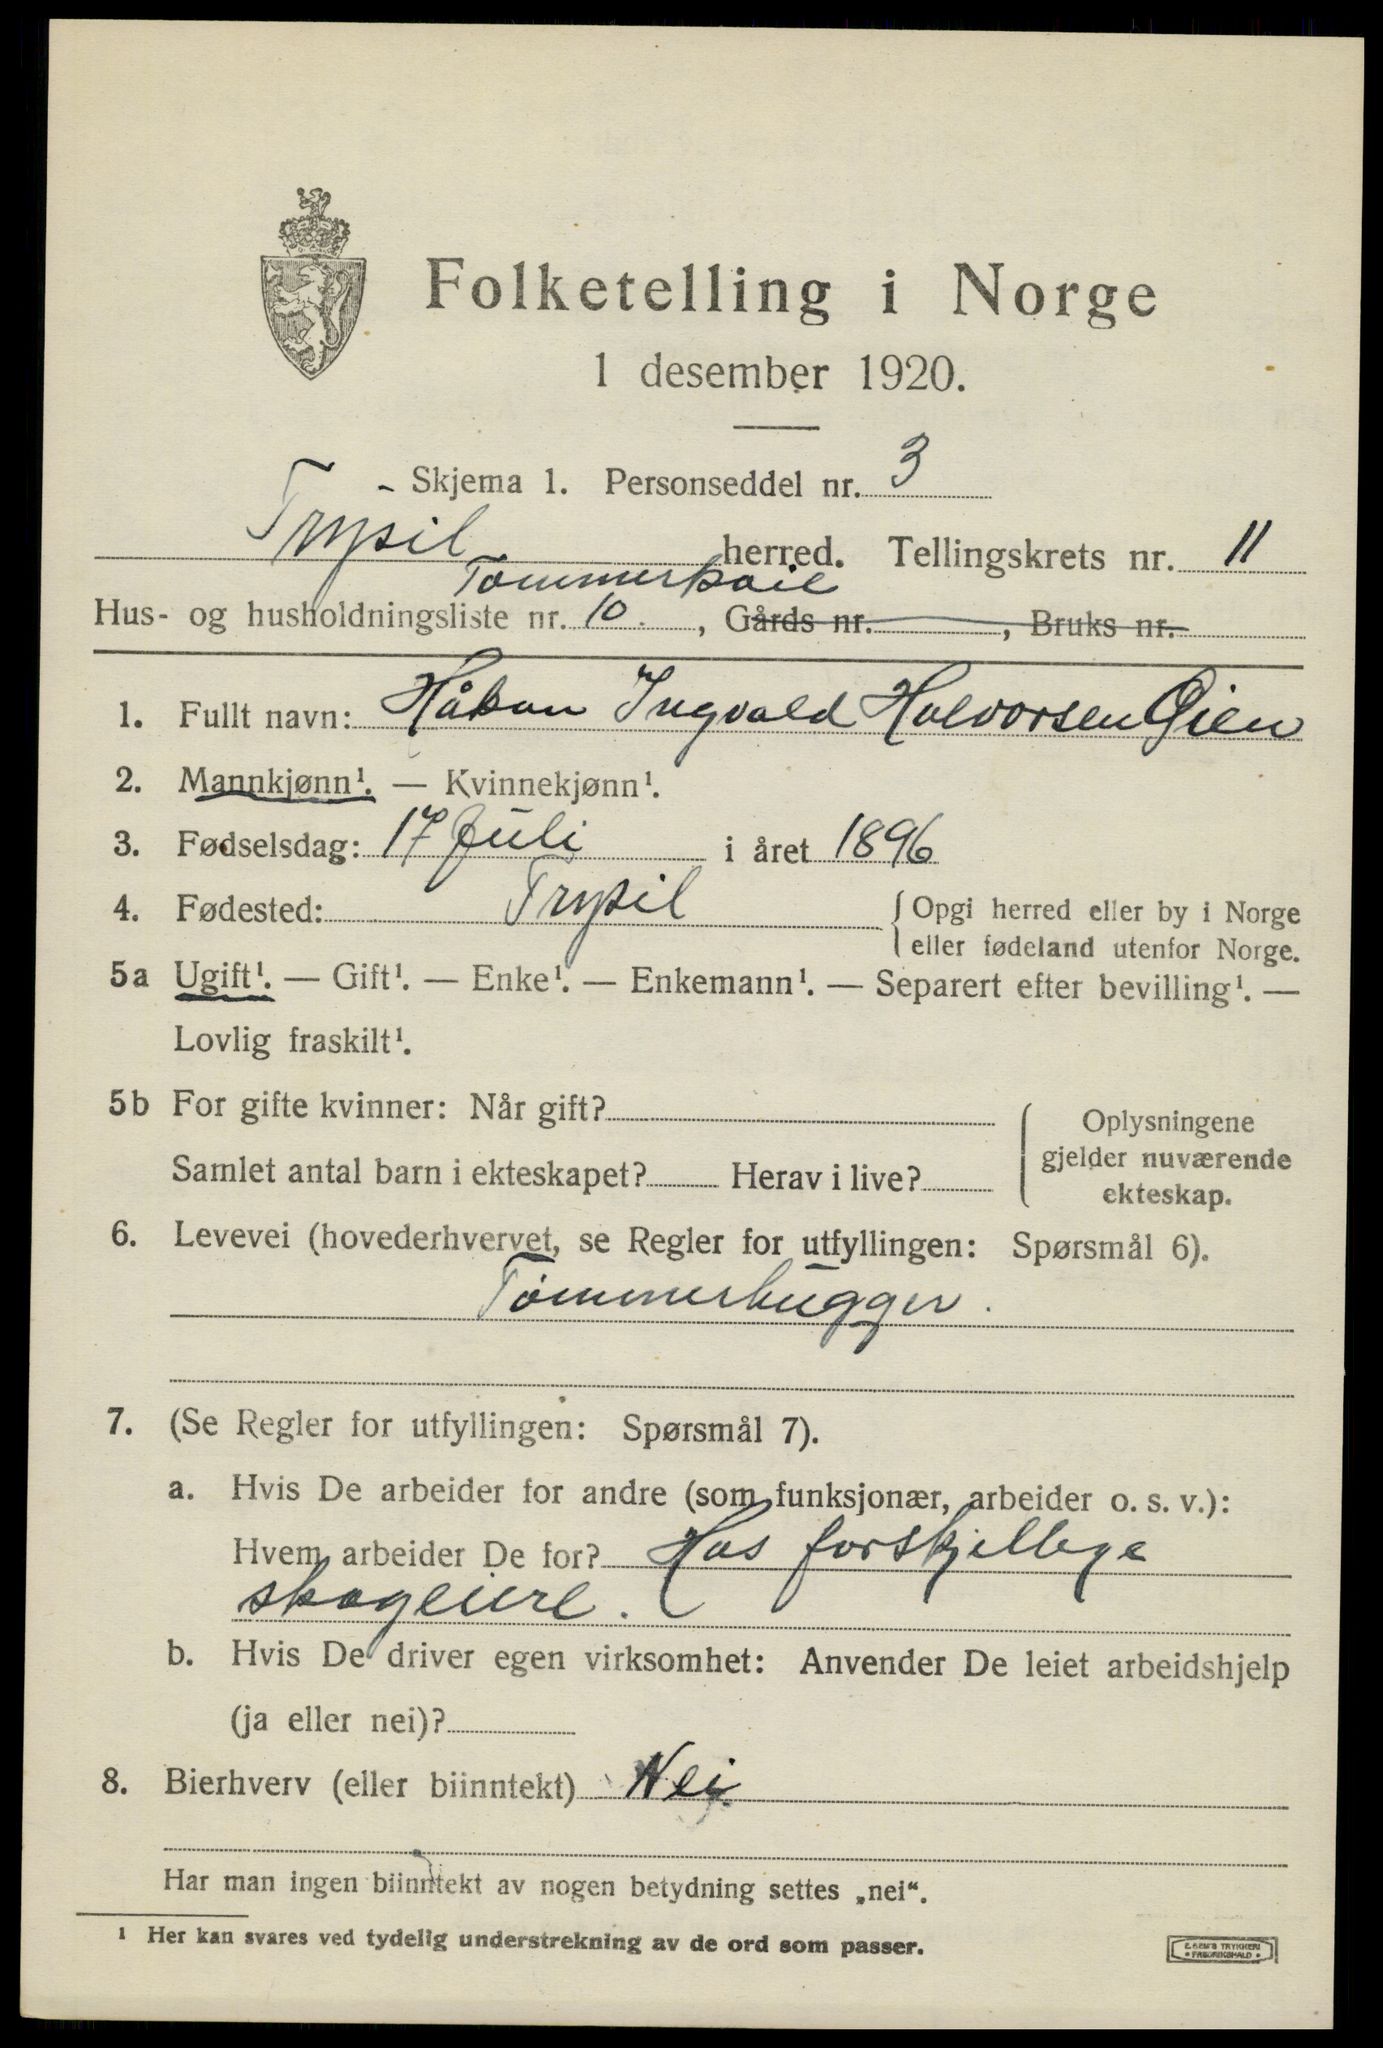 Folketelling i Norge
1 desember 1920.
Skjema 1. Personseddel nr. 3
Trysil herred. Tellingskrets nr. 11
Tømmerkoie
Hus- og husholdningsliste nr. 10. , Gårds nr. , Bruks nr.
1. Fullt navn: Håkon Ingvald Halvorsen Øien
2. Mannkjønn¹. — Kvinnekjønn¹.
3. Fødselsdag: 17 Juli i året 1896
4. Fødested: Trysil { Opgi herred eller by i Norge
eller fødeland utenfor Norge.
5a Ugift¹. — Gift¹. — Enke¹. — Enkemann¹. — Separert efter bevilling¹. —
Lovlig fraskilt¹.
5b For gifte kvinner: Når gift?
Samlet antal barn i ekteskapet? Herav i live?
Oplysningene
gjelder nuværende
ekteskap.
6. Levevei (hovederhvervet, se Regler for utfyllingen: Spørsmål 6).
Tømmerhugger.
7. (Se Regler for utfyllingen: Spørsmål 7).
a. Hvis De arbeider for andre (som funksjonær, arbeider o. s. v.):
Hvem arbeider De for? Hos forskjellige
skogeiere.
b. Hvis De driver egen virksomhet: Anvender De leiet arbeidshjelp
(ja eller nei)?
8. Bierhverv (eller biinntekt) Nei
Har man ingen biinntekt av nogen betydning settes „nei“.
¹ Her kan svares ved tydelig understrekning av de ord som passer.
E. SEM'S TRYKKERI
• FREDRIKSHALD •